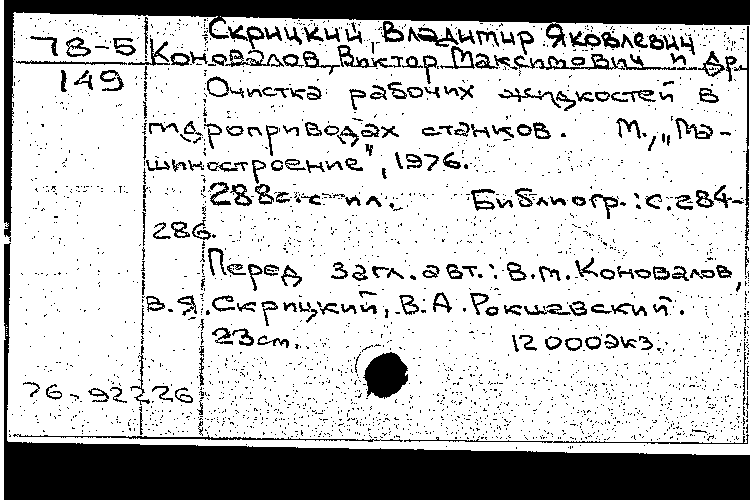 Скрицкий, Владимир Яковлевич
78-5 Коновалов, Виктор Максимович и др.
149 Очистка рабочих жидкостей в
гидроприводах станков. М., „Ма-
шиностроение", 1976.
288с. с ил. Библиогр.: с.284-
286.
Перед загл. авт.: В.М. Коновалов,
В.Я. Скрицкий, В.А. Рокшевский.
23см. 12000экз.
76-92226